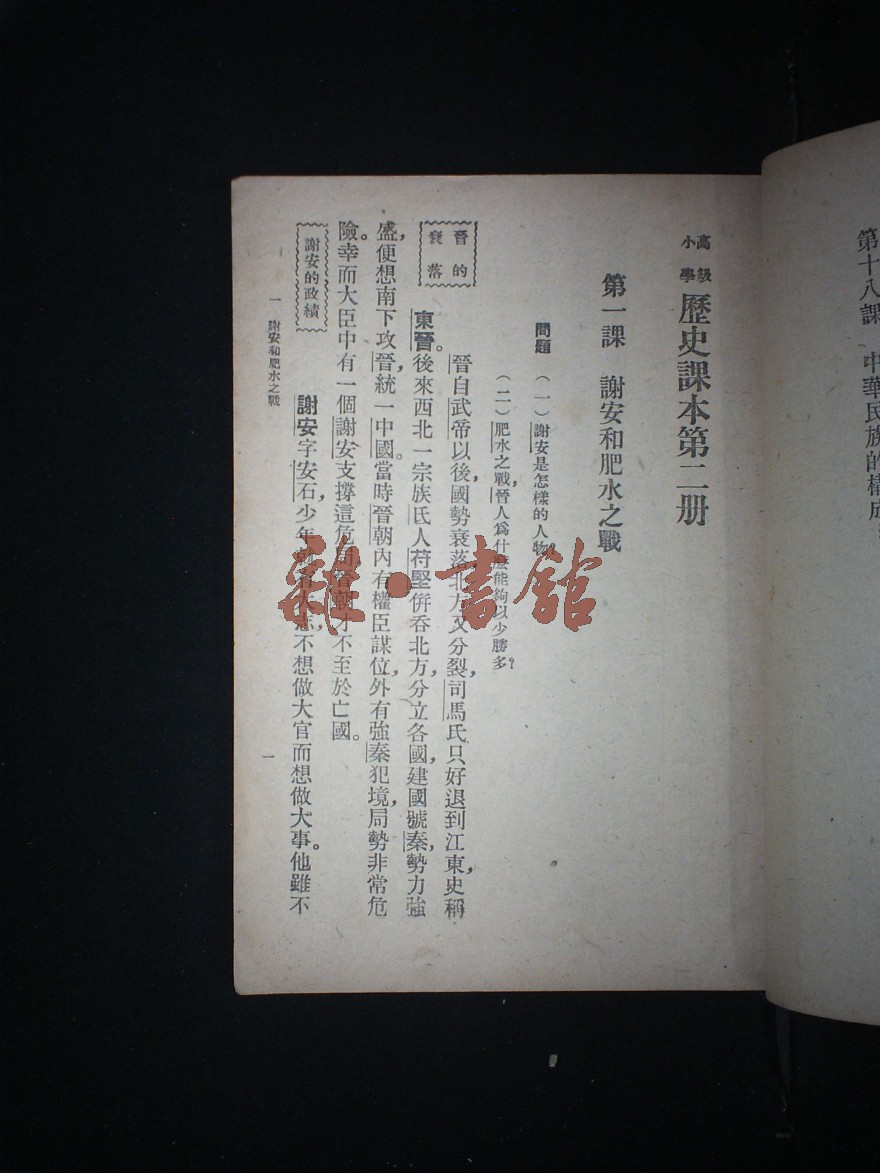 第十八課 中華民族的構成
高級
小學
歷史課本第二册
第一課 謝安和肥水之戰
問題 (一)謝安是怎樣的人物?
(二)肥水之戰,晉人爲什麼能夠以少勝多?
晉的
衰落
晉自武帝以後,國勢衰落,北方又分裂,司馬氏只好退到江東,史稱
東晉。後來西北一宗族氐人苻堅倂吞北方,分立各國,建國號秦,勢力強
盛,便想南下攻晉,統一中國。當時晉朝內有權臣謀位,外有強秦犯境,局勢非常危
險。幸而大臣中有一個謝安支撐這危局,晉朝才不至於亡國。
謝安的政績
謝安字安石,少年就有大志,不想做大官而想做大事。他雖不
一 謝安和肥水之戰
一
雜·書館